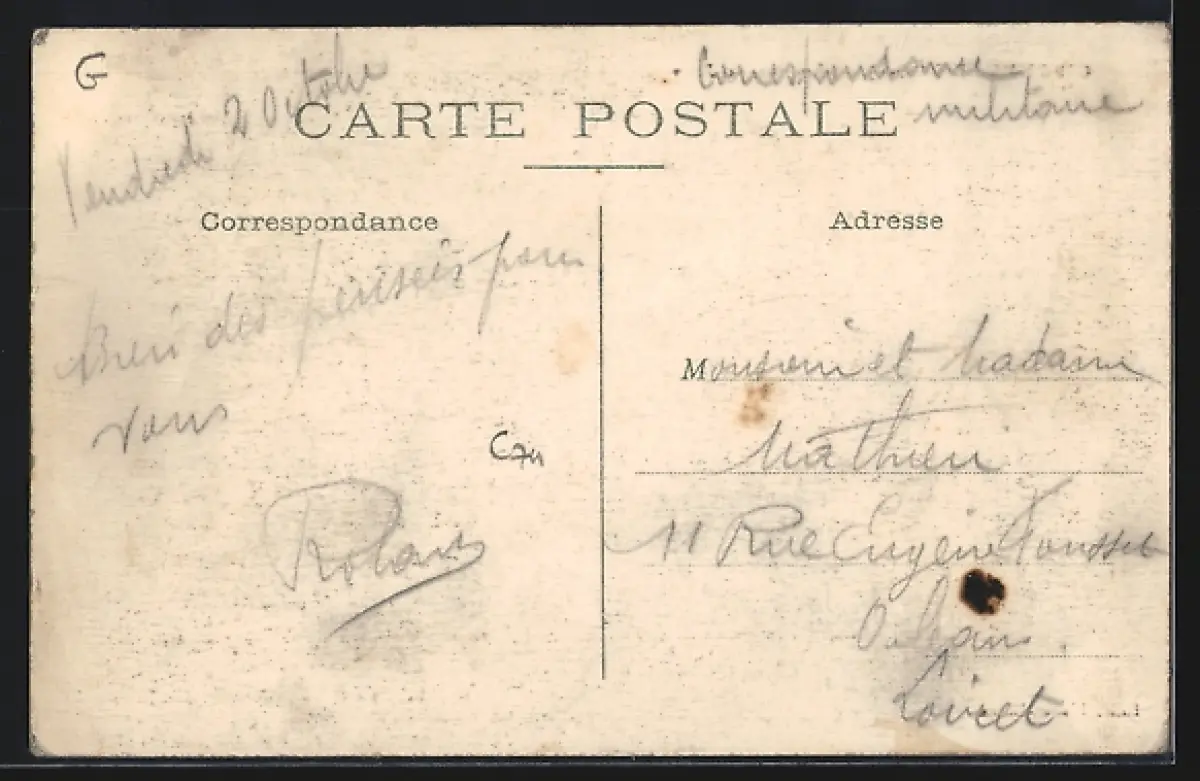 G
Vendredi 2 Octobre
Correspondance
militaire
CARTE POSTALE
Correspondance
Bien des pensées pour
vous
C74
Adresse
Monsieur et Madame
Mathieu
11 Rue Eugène
Orléans
Loiret